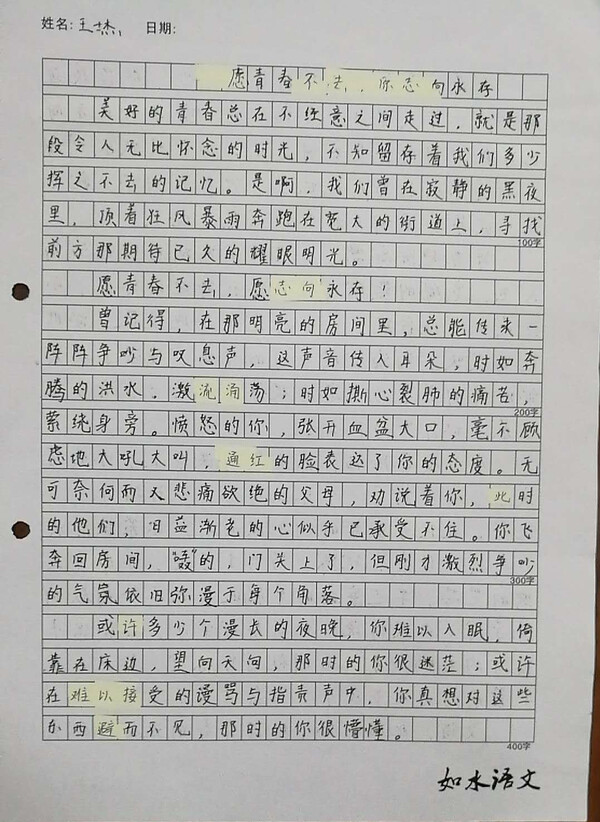 姓名:王杰 日期:
愿青春不去,你志向永存
美好的青春总在不经意之间走过,就是那
段令人无比怀念的时光,不知留存着我们多少
挥之不去的记忆。是啊,我们曾在寂静的黑夜
里,顶着狂风暴雨奔跑在宽大的街道上,寻找
100字
前方那期待已久的耀眼明光。
愿青春不去,愿志向永存!
曾记得,在那明亮的房间里,总能传来一
阵阵争吵与叹息声,这声音传入耳朵,时如奔
腾的洪水,激流涌荡;时如撕心裂肺的痛苦,
200字
萦绕身旁。愤怒的你,张开血盆大口,毫不顾
虑地大吼大叫,通红的脸表达了你的态度。无
可奈何而又悲痛欲绝的父母,劝说着你,此时
的他们,日益渐老的心似乎已承受不住。你飞
奔回房间,"嗙"的,门关上了,但刚才激烈争吵
300字
的气氛依旧弥漫于每个角落。
或许多少个漫长的夜晚,你难以入眠,倚
靠在床边,望向天间,那时的你很迷茫;或许
在难以接受的谩骂与指责声中,你真想对这些
东西避而不见,那时的你很懵懂。
400字
如水语文